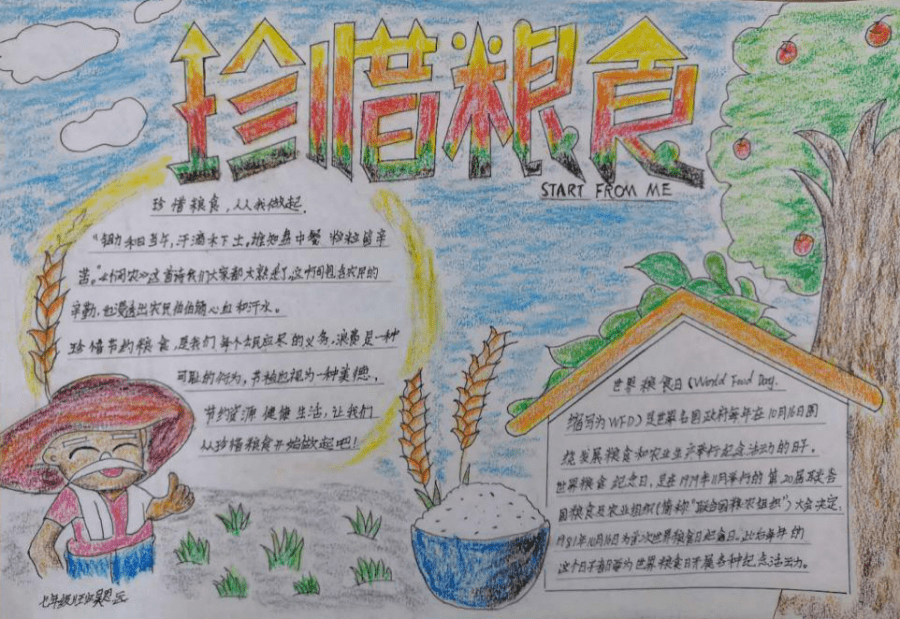 珍惜粮食
START FROM ME
珍惜粮食,从我做起.
"锄禾日当午,汗滴禾下土,谁知盘中餐 粒粒皆辛
苦。"《悯农》这首诗我们大家都大熟了,这中间包含农民的
辛勤,也浸透出农民伯伯的心血和汗水。
珍惜节约粮食,是我们每个公民应尽的义务,浪费是一种
可耻的行为,节检也视为一种美德.,
节约资源 健康生活,让我们
从珍惜粮食开始做起吧!
世界粮食日(World Food Day.
缩写为WFD)是世界各国政府每年在10月16日围
绕发展粮食和农业生产举行纪念活动的日子。
世界粮食纪念日,是在1979年11月举行的第20届联合
国粮食及农业组织(简称"联合国粮农组织")大会决定:
1981年10月16日为首次世界粮食日纪念日。此后每年的
这个日子都要为世界粮食日开展各种纪念活动。
七年级